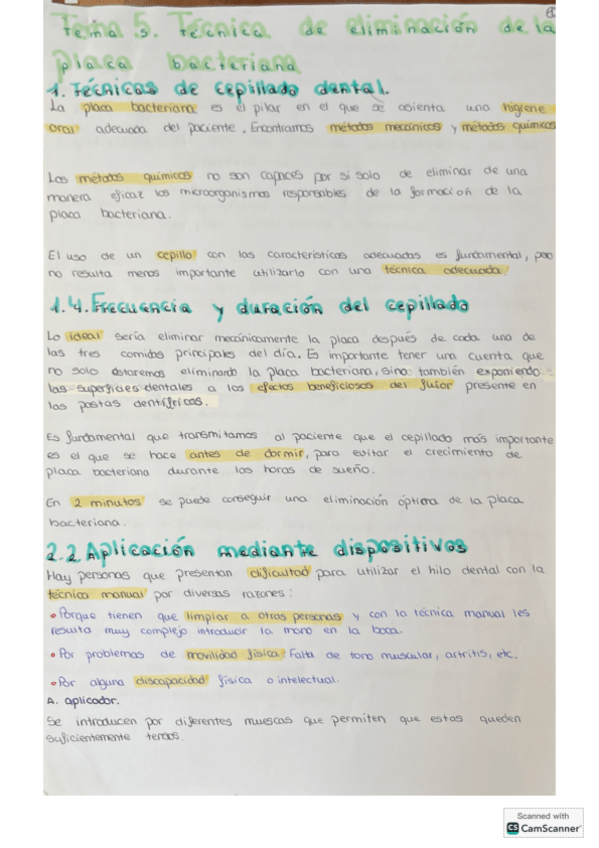 Tema 5. Técnica de eliminación de la
placa bacteriana
1. Técnicas de cepillado dental.
La placa bacteriana es el pilar en el que se asienta una higiene
oral adecuada del paciente. Encontramos métodos mecánicos y métodos químicos
Los métodos químicos no son capaces por si solo de eliminar de una
manera eficaz los microorganismos responsables de la formacion de la
placa bacteriana.
El uso de un cepillo con las características adecuadas es fundamental, pero
no resulta menos importante utilizarlo con una técnica adecuada.
1.4. Frecuencia y duración del cepillado
Lo ideal sería eliminar mecánicamente la placa después de cada una de
las tres comidas principales del día. Es importante tener una cuenta que
no solo estaremos eliminando la placa bacteriana, sino también exponiendo
las superficies dentales a los efectos beneficiosos del fluor presente en
las pastas dentífricas.
Es fundamental que transmitamos al paciente que el cepillado más importante
es el que se hace antes de dormir, para evitar el crecimiento de
placa bacteriana durante las horas de sueño.
En 2 minutos se puede conseguir una eliminación óptima de la placa
bacteriana.
2.2 Aplicación mediante dispositivos
Hay personas que presentan dificultad para utilizar el hilo dental con la
técnica manual por diversas razones:
• Porque tienen que limpiar a otras personas y con la técnica manual les
resulta muy complejo introducir la mano en la boca.
• Por problemas de movilidad física: Falta de tono muscular, artritis, etc.
• Por alguna discapacidad física o intelectual.
A. aplicador.
Se introducen por diferentes muescas que permiten que estas queden
suficientemente tensos.
Scanned with
CS CamScanner